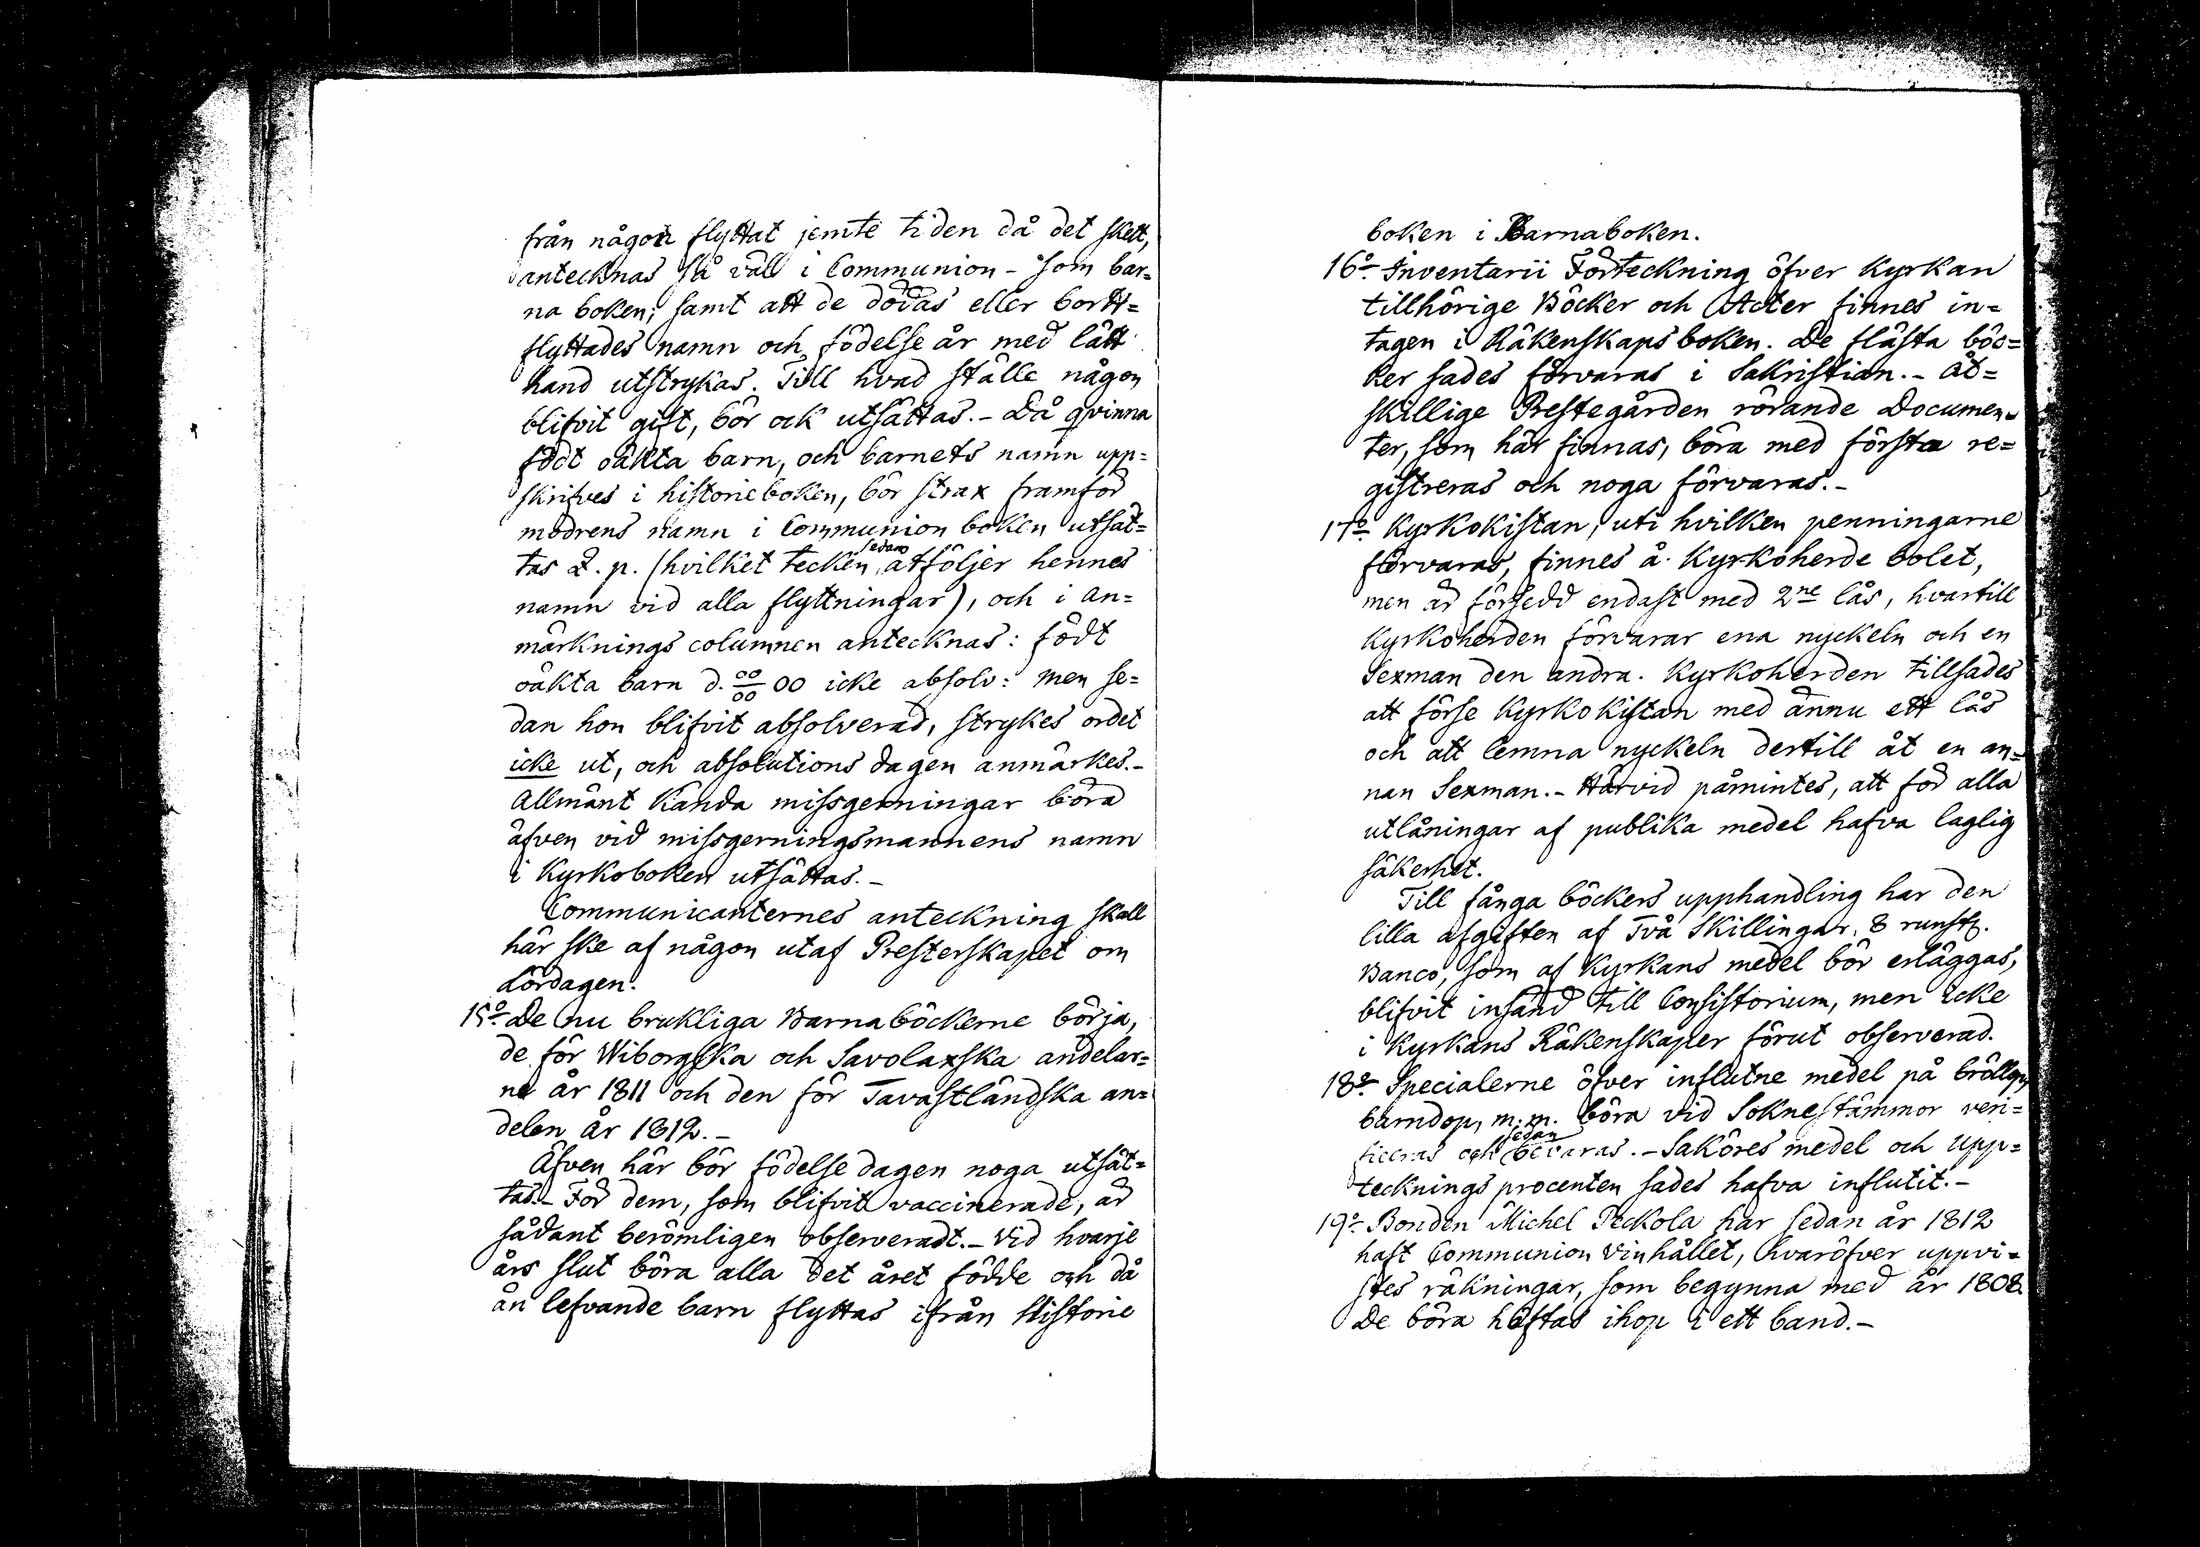 från någon flyttat jemte tiden då det skett,
antecknas så väll i Communion- som bar=
na boken; samt att de dödas eller bortt=
flyttades namn och födelse år med lätt
hand utstrykas. Till hvad ställe någon
blifvit gift, bör ock utsättas.- Då qvinna
födt oäkta barn, och barnets namn upp=
skrifves i historieboken, bör strax framför
modrens namn i Communion boken utsät=
tas L. p. (hvilket tecken sedan åtföljer hennes
namn vid alla flyttningar), och i an=
märknings columnen antecknas: födt
oäkta barn d. 00/00 00 icke absolv: men se=
dan hon blifvit absolverad, strykes ordet
icke ut, och absolutions dagen anmärkes.-
Allmänt kända missgerningar böra
äfven vid missgerningsmannens namn
i Kyrkoboken utsättas.-
Communicanternes anteckning skall
här ske af någon utaf Presterskapet om
Lördagen.
15o De nu brukliga Barnaböckerne börja,
de för Wiborgska och Savolaxska andelar=
ne år 1811 och den för Tavastländska an=
delen år 1812.-
Äfven här bör födelse dagen noga utsät=
tas.- För dem, som blifvit vaccinerade, är
sådant berömligen observeradt.- Vid hvarje
års slut böra alla det året födde och då
än lefvande barn flyttas ifrån Historie
boken i Barnaboken.
16o Inventarii Förteckning öfver Kyrkan
tillhörige Böcker och Acter finnes in=
tagen i Räkenskaps boken. De flästa böc=
ker sades förvaras i Sakristian.- Åt=
skillige Prestegården rörande Documen=
ter, som här finnas, böra med första re=
gistreras och noga förvaras.-
17o Kyrkokistan, uti hvilken penningarne
förvaras, finnes å Kyrkoherde bolet,
men är försedd endast med 2ne lås, hvartill
Kyrkoherden förvarar ena nyckeln och en
Sexman den andra. Kyrkoherden tillsades
att förse Kyrkokistan med ännu ett lås
och att lemna nyckeln dertill åt en an=
nan Sexman.- Härvid påmintes, att för alla
utlåningar af publika medel hafva laglig
säkerhet.
Till fånga böckers upphandling har den
lilla afgiften af Två Skillingar 8 runst.
Banco, som af Kyrkans medel bör erläggas,
blifvit insänd till Consistorium, men icke
i Kyrkans Räkenskaper förut observerad.
18o Specialerne öfver influtne medel på bröllop,
barndop, m.m. böra vid Soknestämmor veri=
ficeras och sedan bevaras.- Saköres medel och upp=
tecknings procenten sades hafva influtit.-
19o Bonden Michel Peckola har sedan år 1812
haft Communion vinhållet, hvaröfver uppvi=
stes räkningar, som begynna med år 1808.
De böra häftas ihop i ett band.-